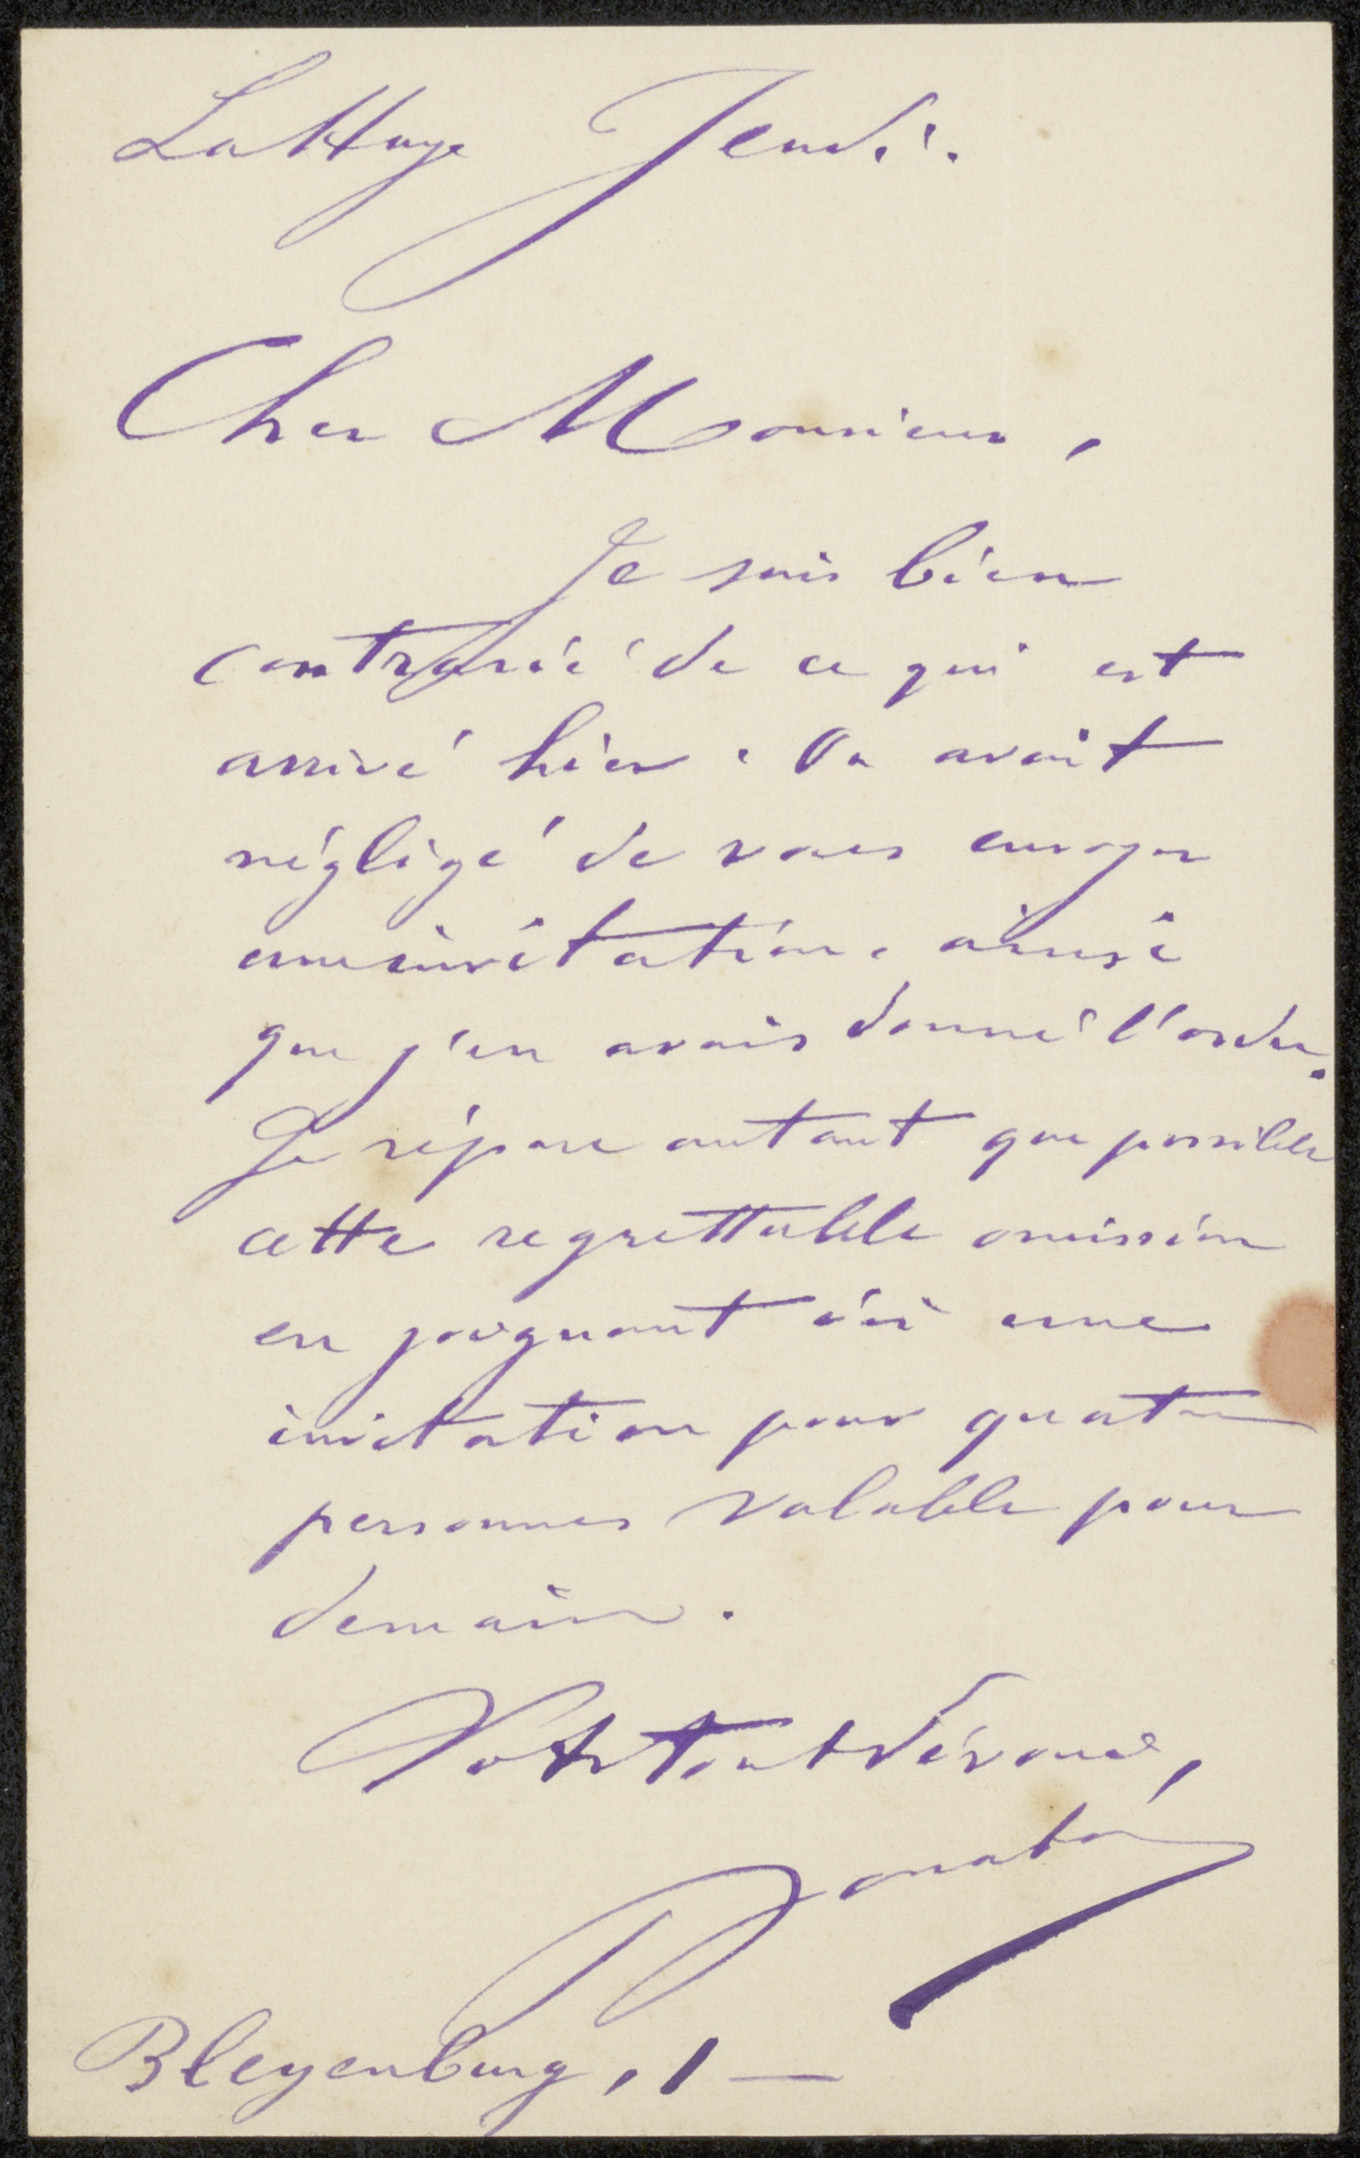 La Haye Jeudi.
Cher Monsieur,
Je suis bien
contrarié de ce qui est
arrivé hier. On avait
négligé de vous envoyer
une invitation, ainsi
que j'en avais donné l'ordre.
Je répare autant que possible
cette regrettable omission
en joignant ici une
invitation pour quatre
personnes valable pour
demain.
Votre tout dévoué,
Donato
Bleyenburg, 1 —